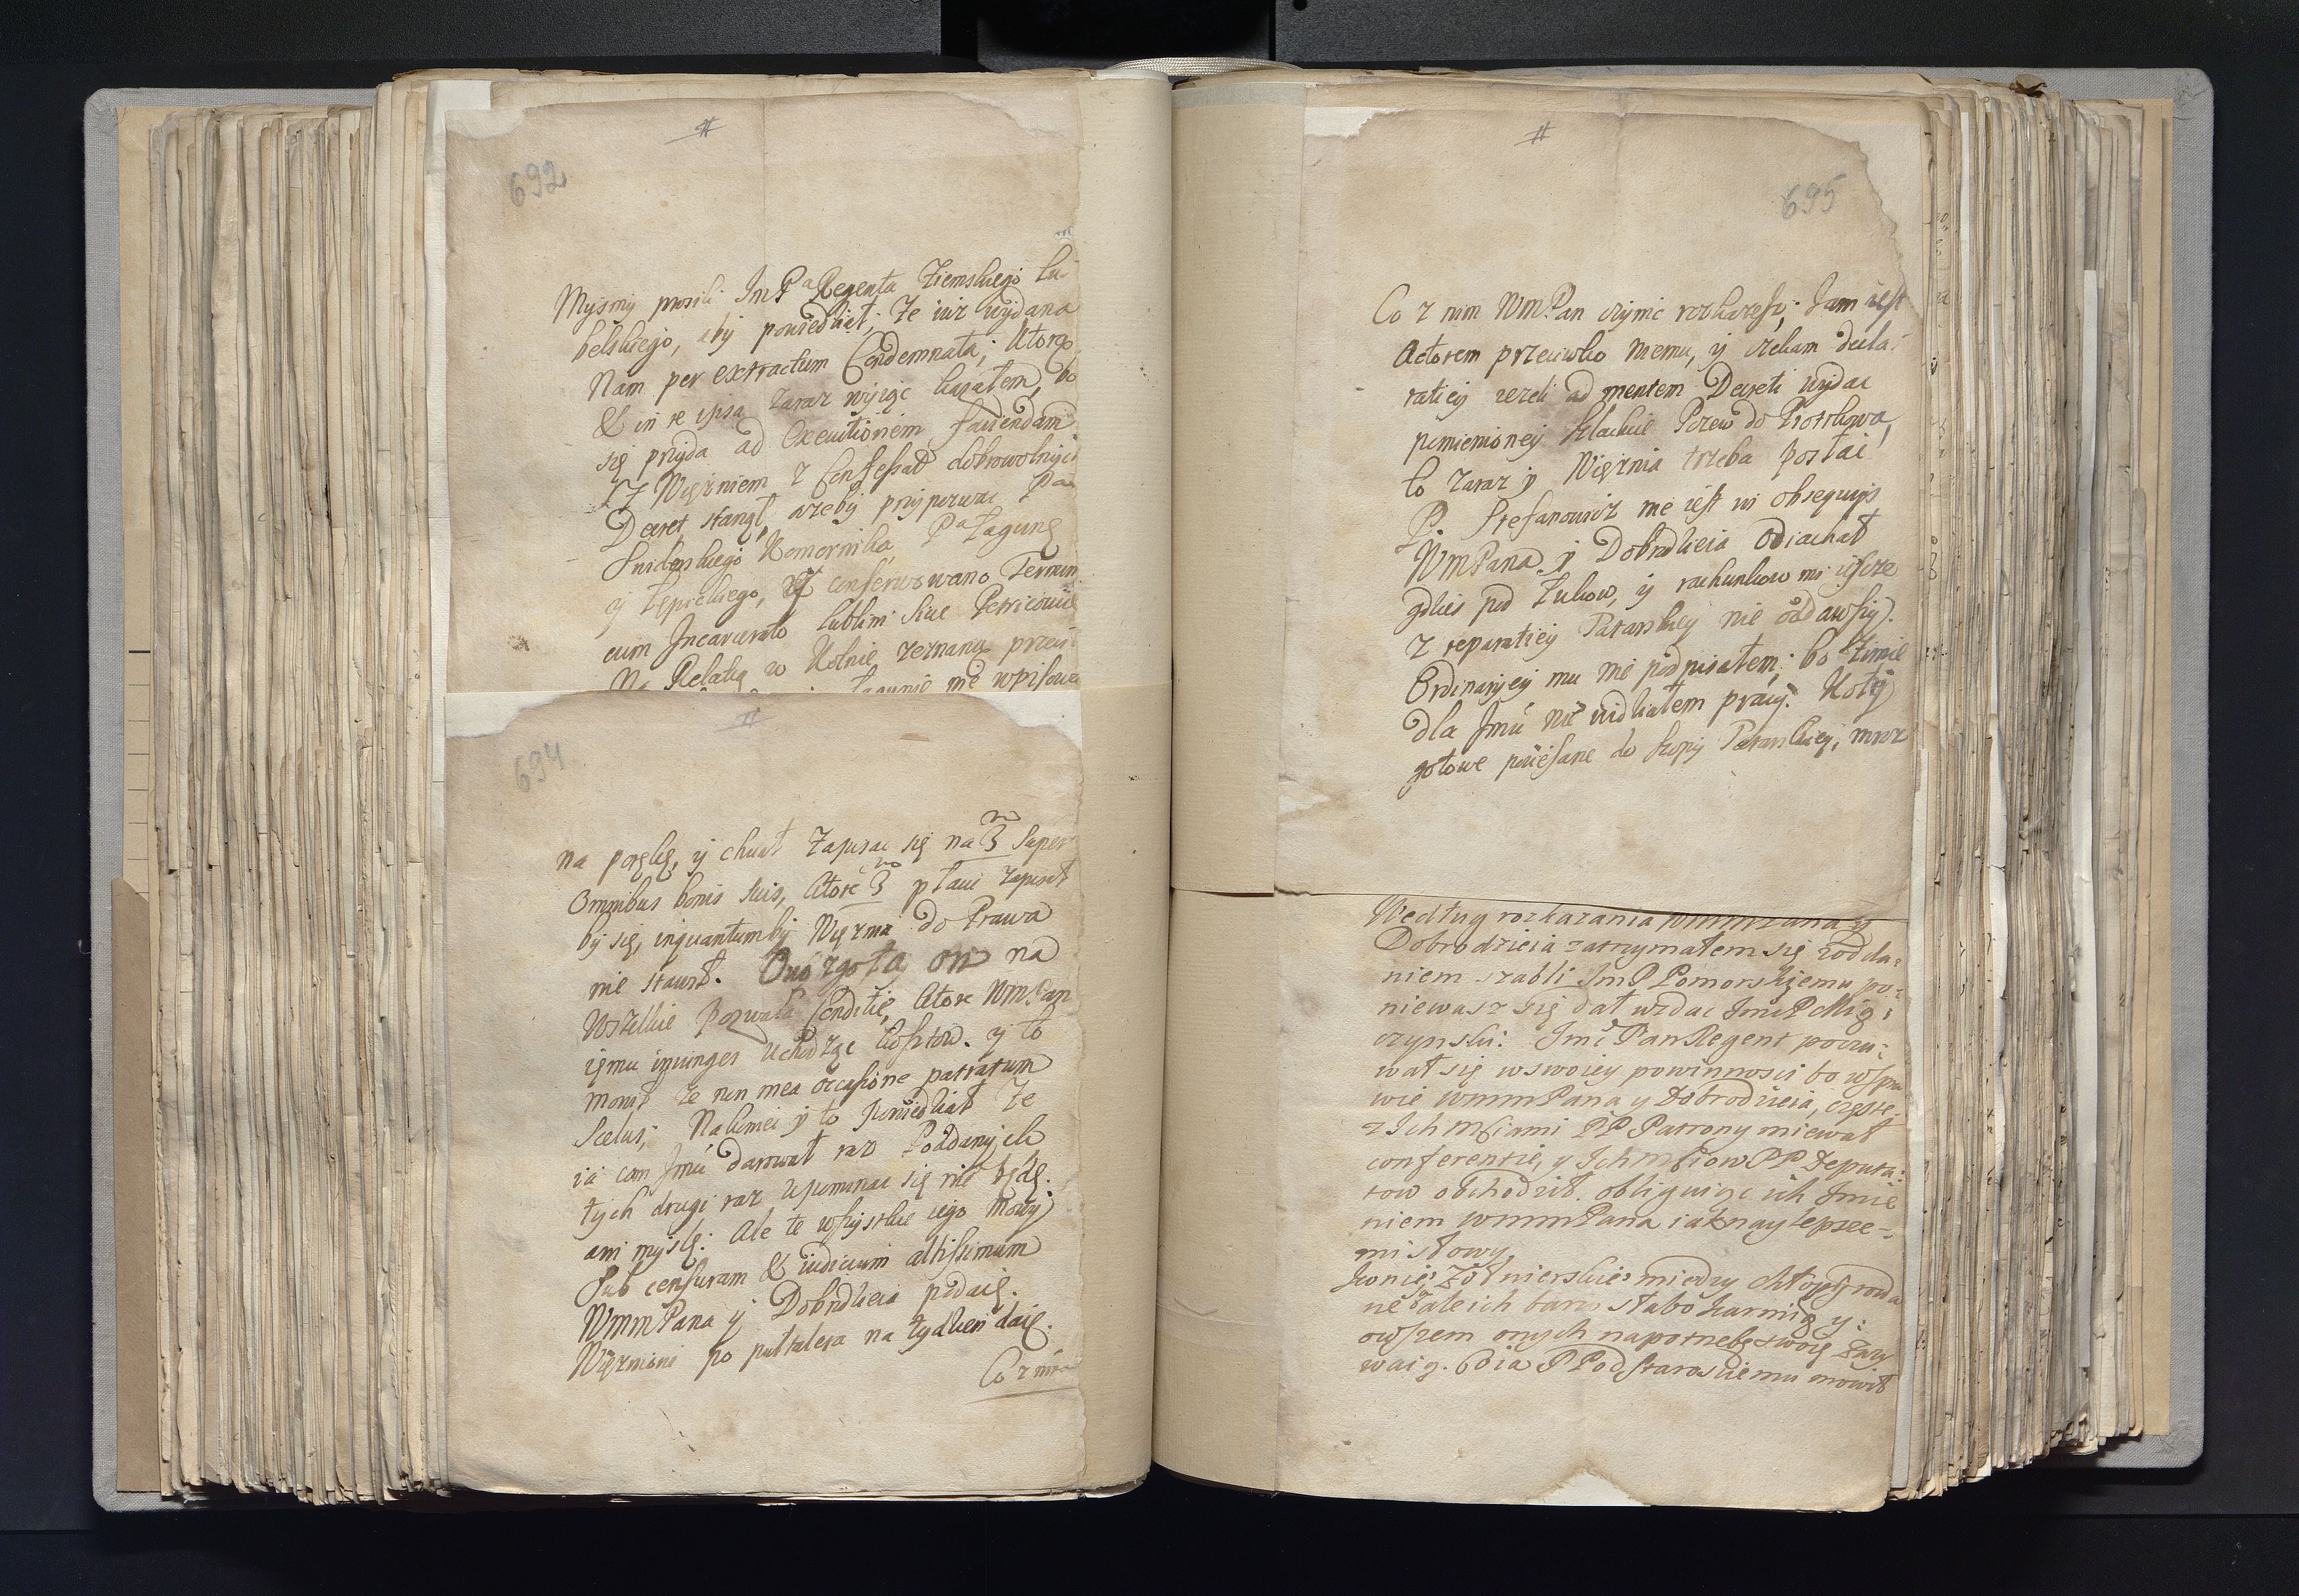 #
692
Myśmy prosili Im Pa Regenta Ziemskiego Lu-
belskiego, aby powiedział, że iuż wydana
Nam per extractum Condemnata; Ktorą
& in re ipsa zaraz wyiąc kazałem, bo
się przyda ad Executionem faciendam
Z Więzniem z Confessat dobrowolnych
Decret stanął, azeby przypozwac Pa
Komornika, Pa Łagunę
y conserwowano Termin
cum Incarcerato Lublini siue Petricouiæ
Na Relatią w Kolnie zeznaną
Łagunie nie
#
694
na poręke, y chciał zapisac się na 3 m super
Omnibus bonis suis, Ktore 3 m płaci zapisał
by się, inquantumby Więznia do Prawa
nie stawił. Owo zgoła on na
Wszelkie pozwala Conditie, Ktore WmPan
iemu iniunges uchodząc kosztow. y to
mowił że non mea occasione patratum
Scelus; Nakoniec y to powiedział że
ia com Jmci darował raz Poddanych
tych drugi raz upominac się nie będę.
ani myslę: Ale te wszystkie iego mowy
Sub censuram & iudicium altissimum
WmmPana y Dobrodzieia podaię.
Więzniowi po pułtalera na tydzień daię.
Co z nim
#
695
Co z nim WmPan czynic rozkażesz; Jam iest
Actorem przeciwko niemu, y czekam decla-
ratiey iezeli ad mentem Decreti wydac
pomienioney Szlachcie Pozew do Piotrkowa,
to zaraz y Więznia trzeba posłac
P. Stefanowicz nie iest in obsequijs
WmPana y Dobrodzieia odiachał
gdzies pod Łukow, y rachunkow mi ieszcze
z reparatiey nie oddawszy.
Ordinaryey mu nie podpisałem; bo zimie
dla Jmci nie widziałem pracy. Koły
gotowe do szopy mroz
Według rozkazania WmmPana y
Dobrodzieia zatrzymałem się z odda-
niem szabli Im P Pomorskiemu po-
niewasz się dał wzdac
czynski: Jmć Pan Regent poczu-
wał się w swoiey powinnosci bo w spra
wie WmmPana y Dobrodzieia, częste
z Ich Msciami PP Patrony miewał
conferentie, y Ich Msciow PP Deputa-
tow obchodził. obliguiąc ich Jmie
niem WmmPana iak naylepsze-
mi słowy.
Konie Zołnierskie między chłopy rozda
ne ale ich barzo słabo karmią y
owszem onych na potrzebę swoię zazy
waią. Co ia P Podstarosciemu mowił